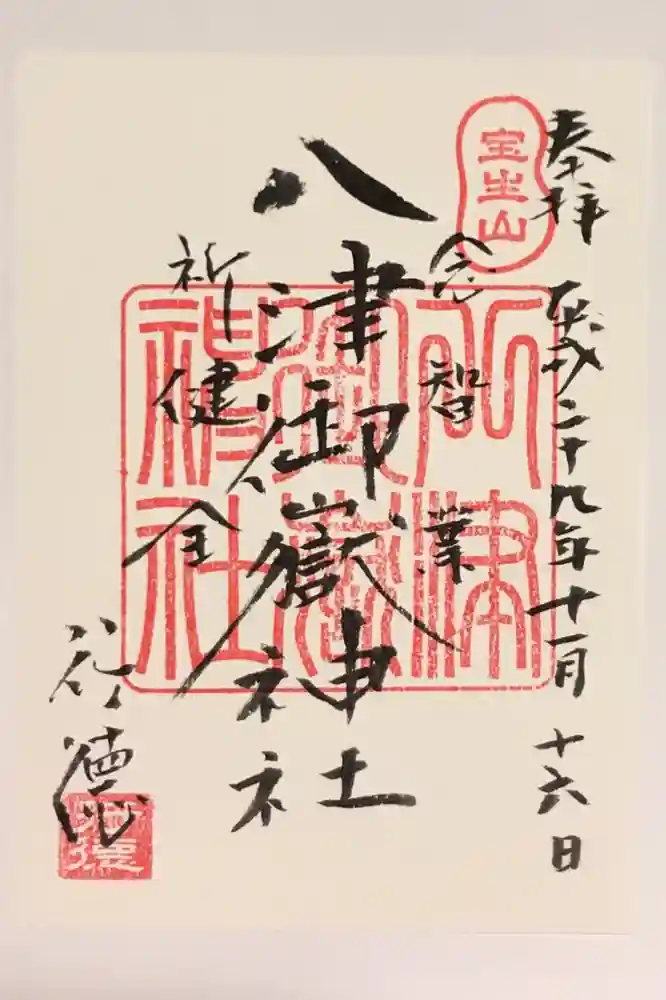 奉拝
平成二十九年十一月十六日
宝生山
念智業
八津御嶽神社
祈健全
行徳
八津
御嶽
神社